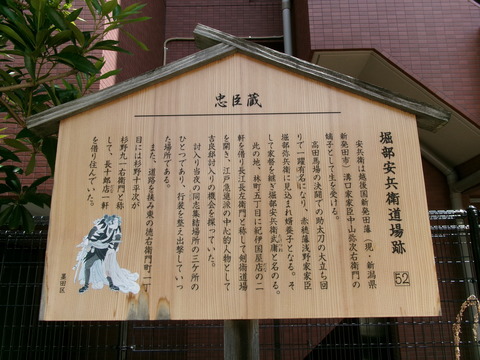 忠臣蔵
堀部安兵衛道場跡
52
安兵衛は越後国新発田藩（現・新潟県
新発田市）溝口家家臣中山弥次右衛門の
嫡子として生を受ける。
高田馬場の決闘での助太刀の大立ち回
りで一躍有名になり、赤穂藩浅野家家臣
堀部弥兵衛に見込まれ婿養子となる。そ
して家督を継ぎ堀部安兵衛武庸と名のる。
此の地、林町五丁目に紀伊国屋店の二
軒を借り長江長左衛門と称して剣術道場
を開き、江戸急進派の中心的人物として
吉良邸討入りの機会を探っていた。
討入り当夜の同志集結場所の三ケ所の
ひとつであり、行装を整え出撃していっ
た場所である。
また、道路を挟み東の徳右衛門町一丁
目には杉野十平次が
杉野九一右衛門と称
して、長十郎店一軒
を借り住んでいた。
墨田区